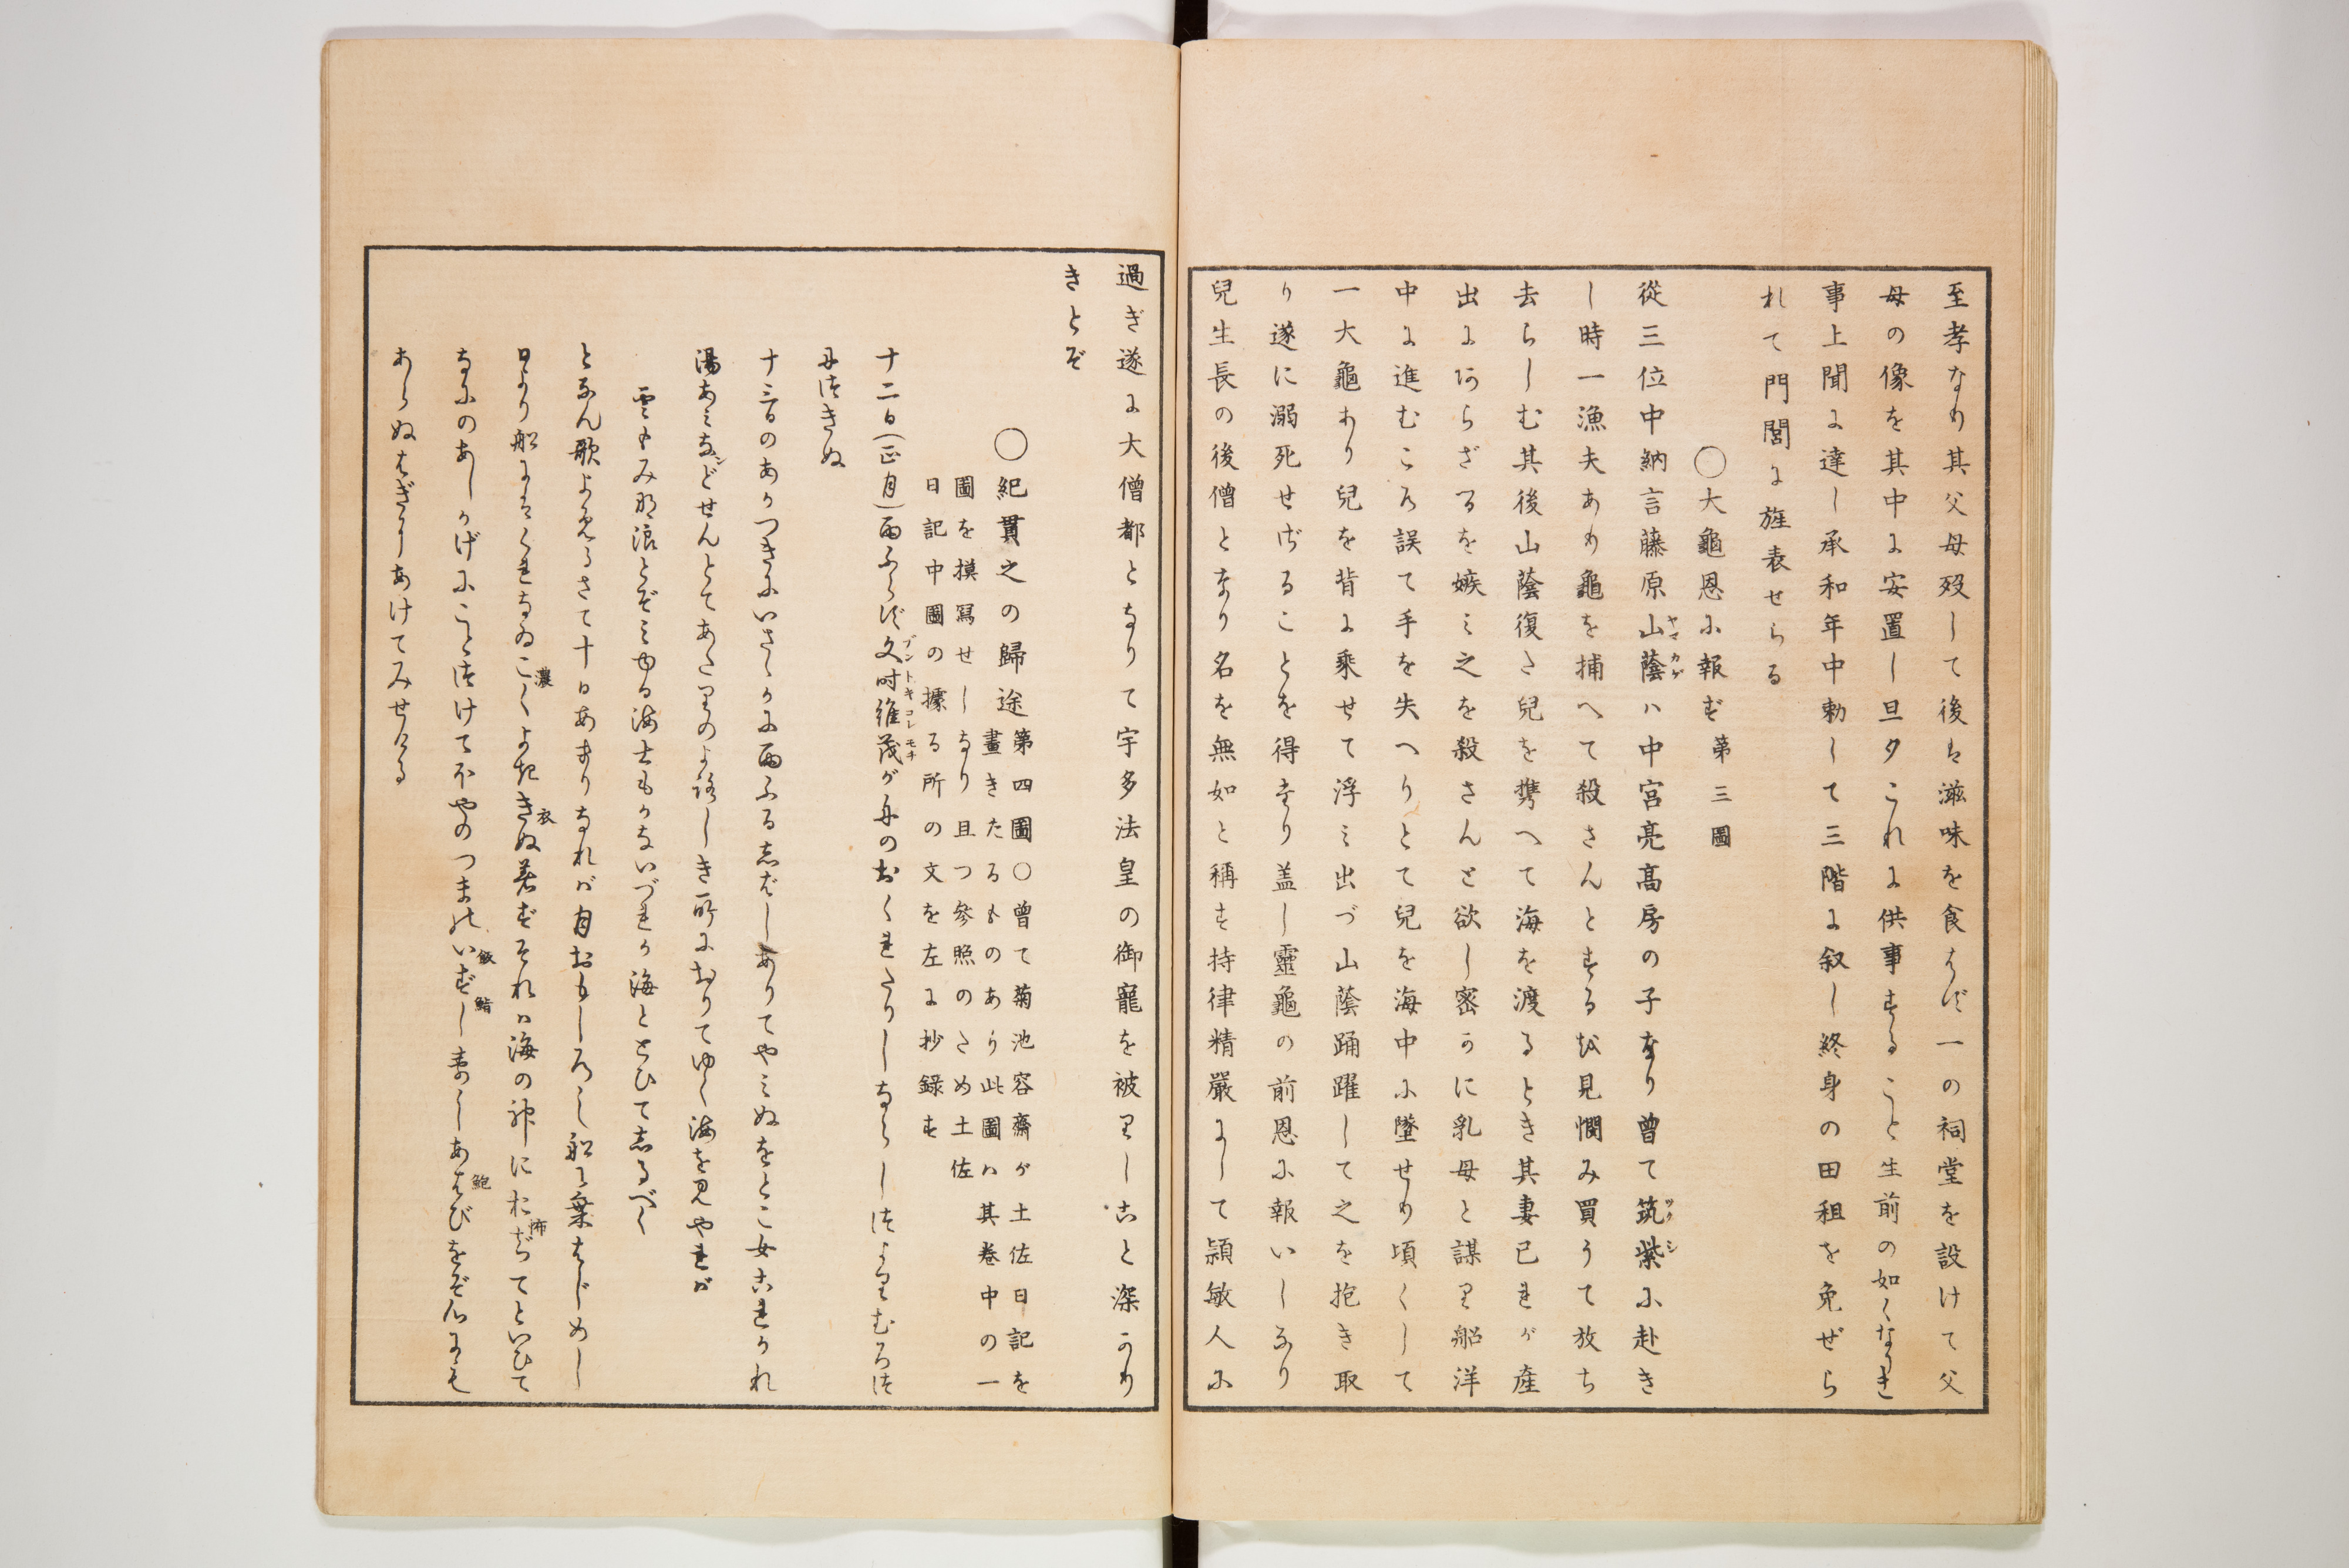 至孝なり其父母歿して後は滋味を食はず一の祠堂を設けて父
母の像を其中に安置し旦夕これに供事することと生前の如くなりき
事上聞に達し承和年中勅して三階に叙し終身の田租を免ぜら
れて門閭に旌表せらる
〇大龜恩に報ず第三圖
從三位中納言藤原山蔭ハ中宮亮高房の子なり曾て筑紫に赴き
し時一漁夫あり龜を捕へて殺さんとするを見憫み買うて放ち
去らしむ其後山蔭復さ兒を携へて海を渡るとき其妻已れが産
出にあらざるを嫉み之を殺さんと欲し密かに乳母と謀り船洋
中に進むころ誤て手を失へりとて兒を海中に墜せり頃くして
一大龜あり兒を背に乘せて浮み出づ山蔭踊躍して之を抱き取
り遂に溺死せざることを得たり盖し靈龜の前恩に報いしなり
兒生長の後僧となり名を無如と稱す持律精嚴にして頴敏人に
過ぎ遂に大僧都となりて宇多法皇の御寵を被りしこと深かり
きとぞ
〇紀貫之の歸途第四圖〇曾て菊池容齋が土佐日記を
畫きたるものあり此圖ハ其卷中の一
圖を摸寫せしなり且つ參照のため土佐
日記中圖の據る所の文を左に抄録す
十二日(正月)雨ふらず文時維茂が舟のおくれたりしならしつよりむろつ
に つきぬ
十三日のあかつきにいさゝかに雨ふるしばしありてやみぬをとこ女これかれ
湯あみなどせんとてあたりのよろしき所におりてゆく海を見やれば
雲もみな浪とぞみゆる海士もがないづれか海ととひてしるべく
となん歌よめるさて十日あまりなれば月おもしろし船に乘はじめし
日より船にはくれなゐこくよききぬ着ずそれハ海の神におぢてといひて
なにのあしかげにことつけてほやのつまのいずしすしあはびをぞ心にも
あらぬはぎにあげてみせける